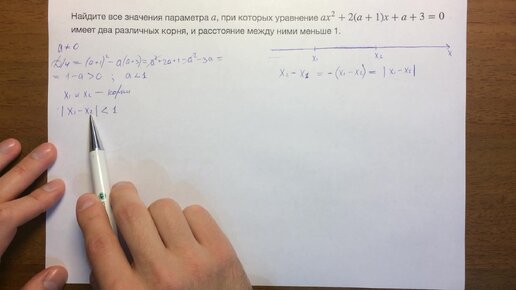 Найдите все значения параметра a, при которых уравнение ax² + 2(a + 1)x + a + 3 = 0
имеет два различных корня, и расстояние между ними меньше 1.
a ≠ 0
D/4 = (a+1)² - a(a+3) = a² + 2a + 1 - a² - 3a =
= 1 - a > 0 ; a < 1
x₁ и x₂ — корни
|x₁ - x₂| < 1
x₁ x₂ x
x₂ - x₁ = -(x₁ - x₂) = |x₁ - x₂|